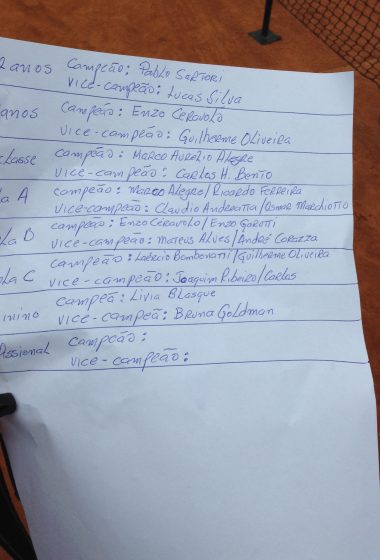 2 anos Campeão: Pablo Sartori
Vice-campeão: Lucas Silva
anos Campeão: Enzo Ceravolo
Vice-campeão: Guilherme Oliveira
classe Campeão: Marco Aurélio Alegre
Vice-campeão: Carlos H. Bento
la A campeão: Marco Alegre/Ricardo Ferreira
Vice-campeão: Claudio Andreatta/Osmar Marchiotto
campeão: Enzo Ceravolo/Enzo Garotti
Vice-campeão: Mateus Alves/André Corazza
campeão: Laércio /Guilherme Oliveira
la C Vice-campeão: Joaquim Ribeiro/Carlos
campeã: Livia Blasque
inino Vice-campeã: Bruna Goldman
issional campeão:
Vice-campeão: